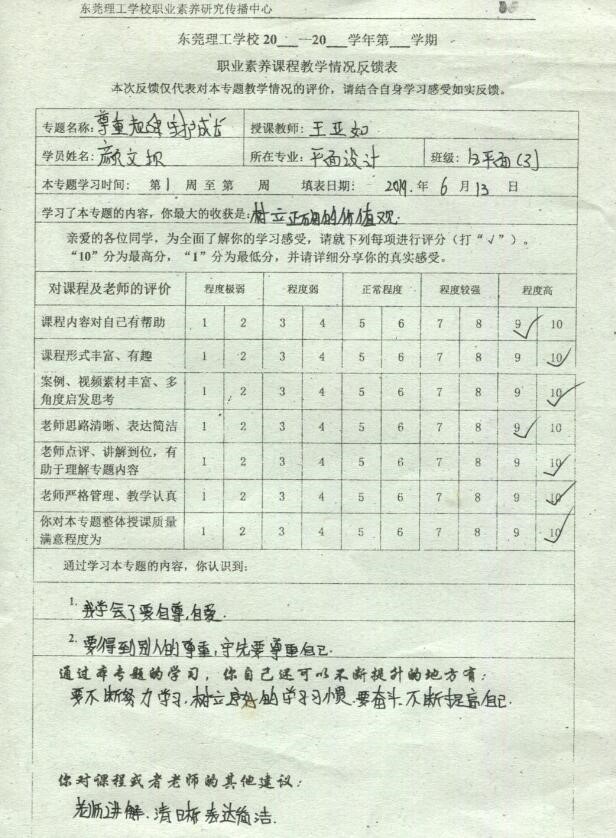 东莞理工学校职业素养研究传播中心
东莞理工学校20___—20___学年第___学期
职业素养课程教学情况反馈表
本次反馈仅代表对本专题教学情况的评价，请结合自身学习感受如实反馈。
专题名称：尊重 成长 授课教师：王亚如
学员姓名：颜文 所在专业：平面设计 班级：平面(3)
本专题学习时间： 第1 周 至 第 周 填表日期： 2019.年 6 月 13 日
学习了本专题的内容，你最大的收获是：树立正确的价值观.
亲爱的各位同学，为全面了解你的学习感受，请就下列每项进行评分（打“√”）。
“10”分为最高分，“1”分为最低分，并请详细分享你的真实感受。
对课程及老师的评价 程度极弱 程度弱 正常程度 程度较强 程度高
课程内容对自己有帮助 1 2 3 4 5 6 7 8 9√ 10
课程形式丰富、有趣 1 2 3 4 5 6 7 8 9 10√
案例、视频素材丰富、多
角度启发思考 1 2 3 4 5 6 7 8 9 10√
老师思路清晰、表达简洁 1 2 3 4 5 6 7 8 9√ 10
老师点评、讲解到位，有
助于理解专题内容 1 2 3 4 5 6 7 8 9 10√
老师严格管理、教学认真 1 2 3 4 5 6 7 8 9 10√
你对本专题整体授课质量
满意程度为 1 2 3 4 5 6 7 8 9 10√
通过学习本专题的内容，你认识到：
1. 我学会了要自尊,自爱.
2. 要得到别人的尊重,先要尊重自己.
通过本专题的学习，你自己还可以不断提升的地方有：
要不断努力学习,树立良好的学习习惯.要奋斗.不断提高自己.
你对课程或者老师的其他建议：
老师讲解.清晰表达简洁.